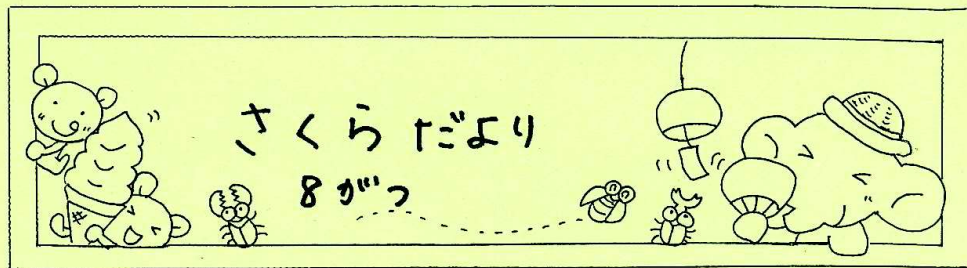 さくらだより
8がつ